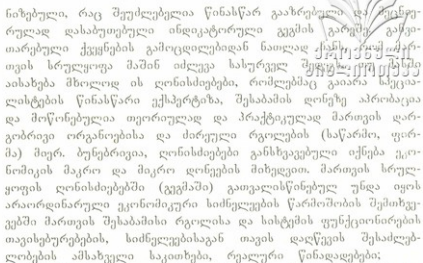 ნიზებული, რაც შეუძლებელია წინასწარ გააზრებული და მეცნიე-
რულად დასაბუთებული ინდიკატორული გეგმის გარეშე. განვი-
თარებული ქვეყნების გამოცდილებიდან ნათლად
თვის სრულყოფა მაშინ იძლევა სასურველ
აისახება მხოლოდ ის ღონისძიებები, რომლებმაც გაიარა სპეცია-
ლისტების წინასწარი ექსპერტიზა, შესაბამის დონეზე აპრობაცია
და მოწონებულია თეორიულად და პრაქტიკულად მართვის დარ-
გობრივი ორგანოებისა და ძირეული რგოლების (საწარმო, ფირ-
მა) მიერ. ბუნებრივია, ღონისძიებები განსხვავებული იქნება ეკო-
ნომიკის მაკრო და მიკრო დონეების მიხედვით. მართვის სრულ-
ყოფის ღონისძიებებში (გეგმაში) გათვალისწინებულ უნდა იყოს
არაორდინარული ეკონომიკური სიძნელეების წარმოშობის შემთხვე-
ვებში მართვის შესაბამისი რგოლისა და სისტემის ფუნქციონირების
თავისებურებების, სიძნელეებისაგან თავის დაღწევის შესაძლებ-
ლობების ამსახველი საკითხები, რეალური წინადადებები;